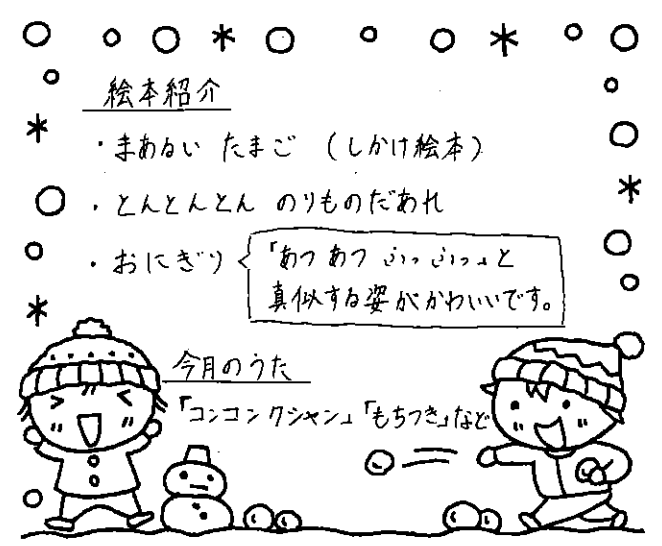 絵本紹介
・まあるい たまご (しかけ絵本)
・とんとんとん のりものだあれ
・おにぎり
「あつ あつ ふっ ふっ」と
真似する姿がかわいいです。
今月のうた
「コンコンクシャン」「もちつき」など